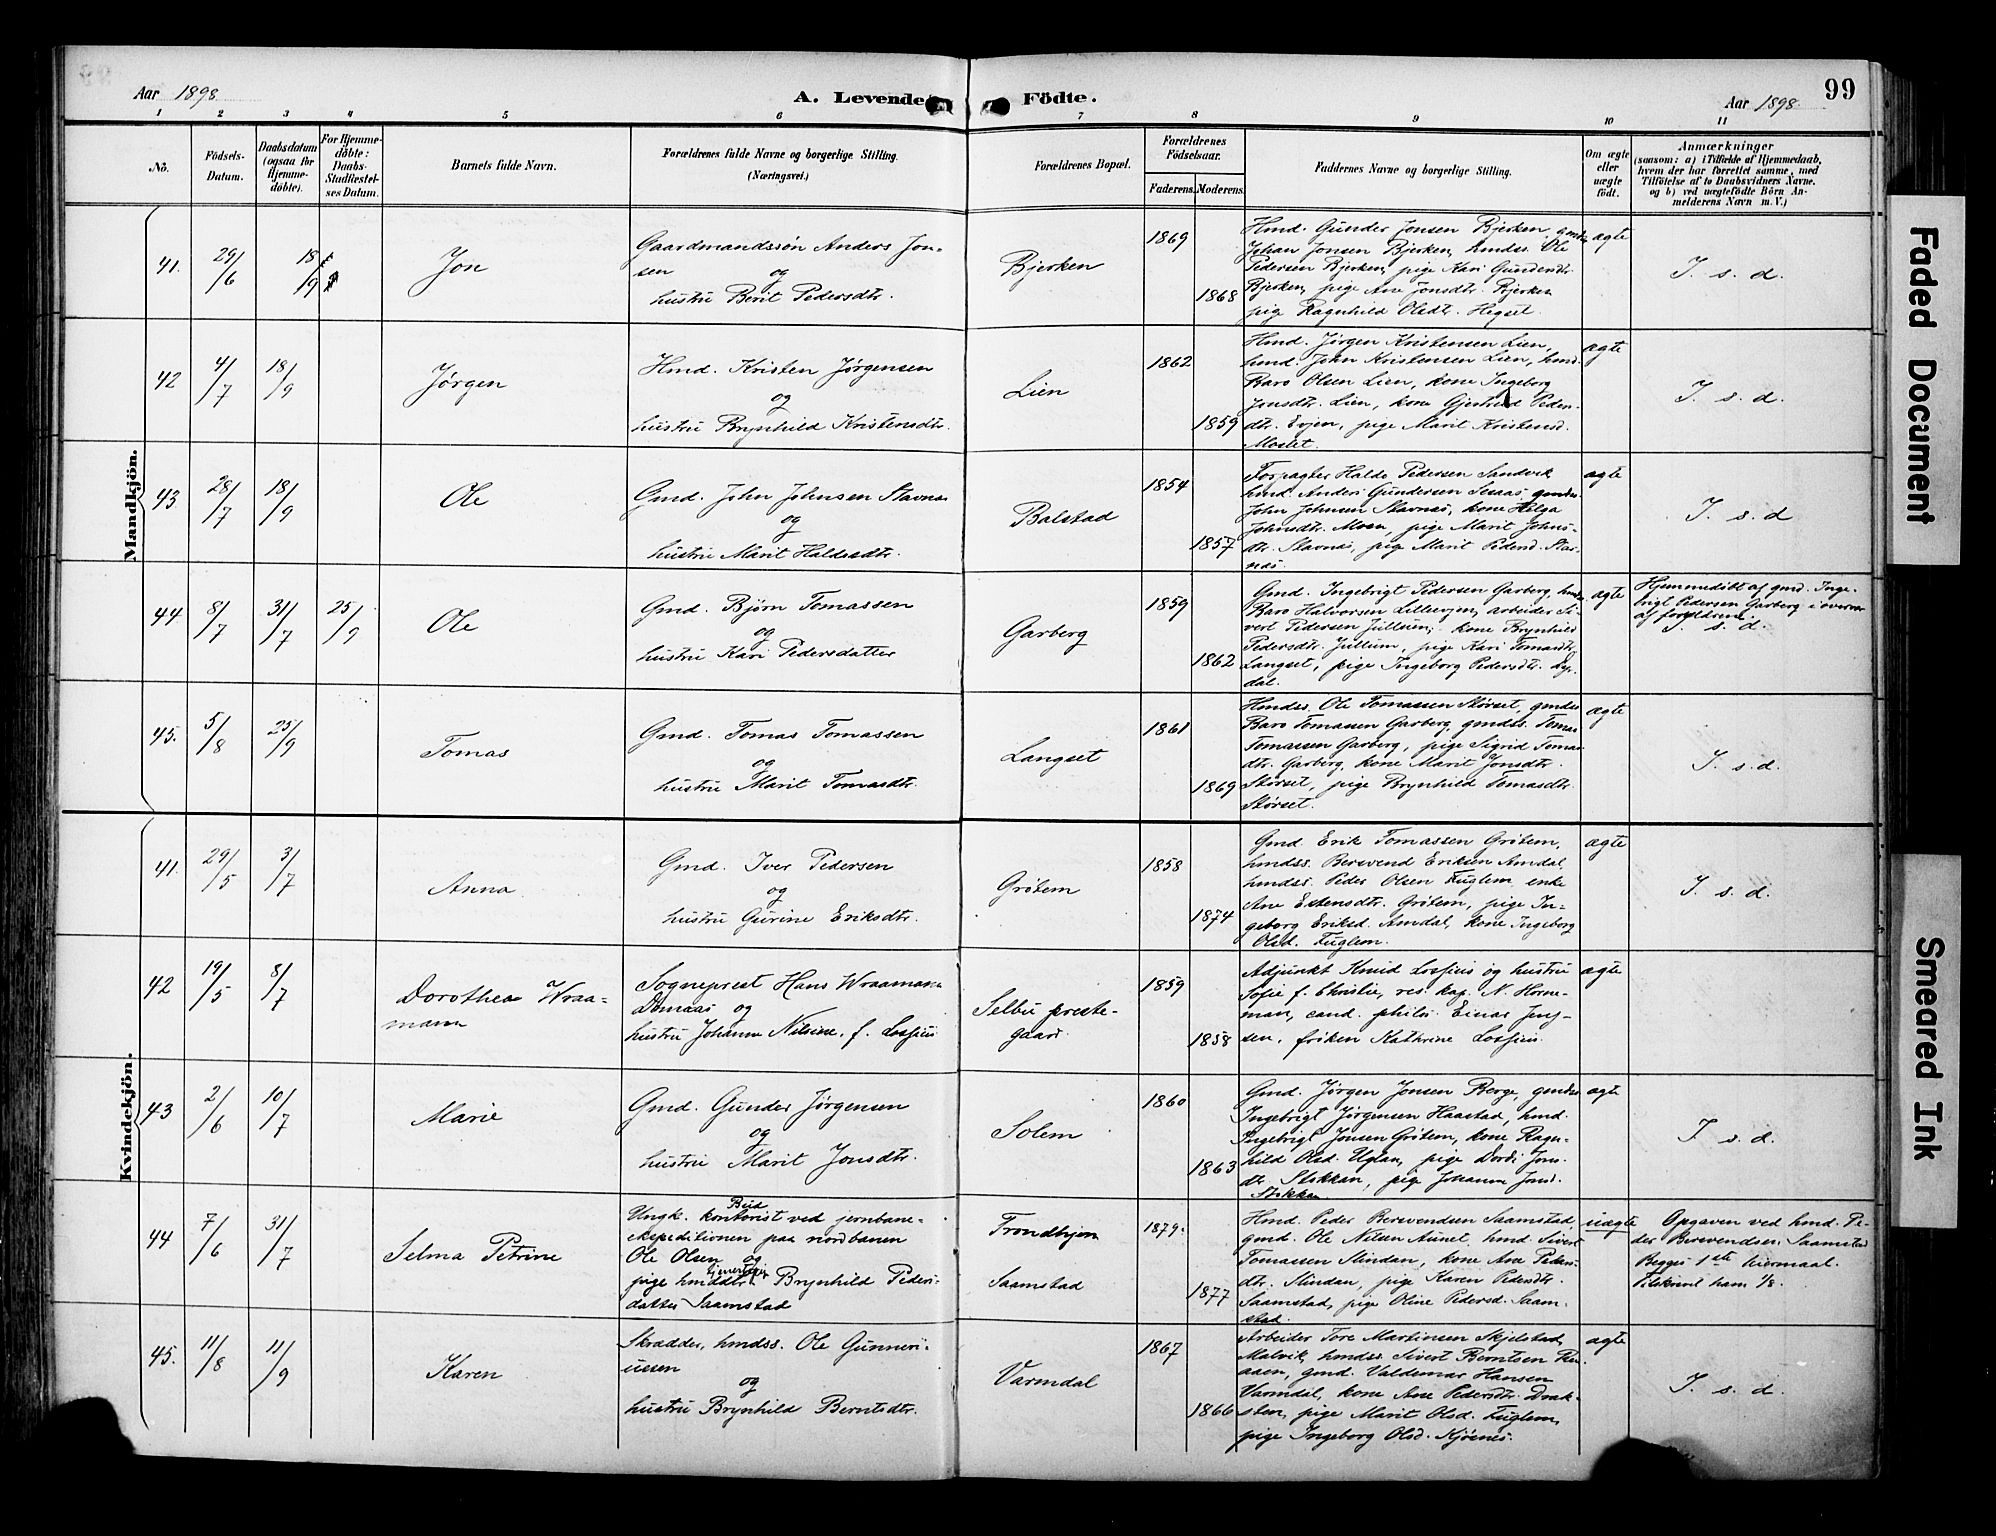 Aar 1898.
A. Levende Födte.
Aar 1898.
99
1 2 3 4 5 6 7 8 9 10 11
No.
Födsels-Datum.
Daabsdatum (ogsaa for Hjemme-döbte).
For Hjemme-döbte: Daabs-Stadfæstel-ses Datum.
Barnets fulde Navn.
Forældrenes fulde Navne og borgerlige Stilling.
(Næringsvei.)
Forældrenes Bopæl.
Forældrenes Födselsaar.
Faderens. Moderens.
Faddernes Navne og borgerlige Stilling.
Om ægte eller uægte födt.
Anmærkninger
(saasom: a) i Tilfælde af Hjemmedaab,
hvem der har forrettet samme, med
Tilföielse af to Daabsvidners Navne,
og b) ved uægtefödte Börn An-
melderens Navn m. V.)
Mandkjön.
41. 29/6 18/9
Jon
Gaardmandssøn Anders Jon-
sen
og
hustru Berit Pedersdtr.
Bjerken
1869
1868
Hmd. Gunder Jonsen Bjerken, gmds.
Johan Jonsen Bjerken, hmdss. Ole
Pedersen Bjerken, pige Kari Gundersdtr.
Bjerken, pige Ane Jonsdtr. Bjerken
pige Ragnhild Olsdtr. Hegset.
ægte
I. s. d.
42 4/7 18/9
Jørgen
Hmd. Kristen Jørgensen
og
hustru Brynhild Kristensdtr.
Lien
1862
1859
Hmd. Jørgen Kristensen Lien,
hmd. John Kristensen Lien, hmd.
Baro Olsen Lien, kone Ingeborg
Jonsdtr. Lien, kone Gjertrud Peders-
dtr. Evjen, pige Marit Kristensd.
Moslet.
ægte
I. s. d.
43 28/7 18/9
Ole
Gmd. John Johnsen Slavnæs
og
hustru Marit Haldorsdtr.
Balstad
1854
1857
Forpagter Halde Pedersen Sandvik
hmd. Anders Gundersen Sesaas, gmds.
John Johnsen Slavnæs, kone Helga
Johnsdtr. Moen, pige Marit Johns-
dtr. Slavnæs, pige Marit Pedersd. Slav-
næs.
ægte
I. s. d
44 8/7 31/7 25/9
Ole
Gmd. Bjørn Tomassen
og
hustru Kari Pedersdatter
Garberg
1859
1862
Gmd. Ingebrigt Pedersen Garberg, hmds.
Baro Halvorsen Lilleevjen, arbeider Si-
vert Pedersen Jullum, kone Brynhild
Pedersdtr. Jullum, pige Kari Tomasdtr.
Langset, pige Ingeborg Pedersdtr. Dyr-
dal.
ægte
Hjemmedøbt af gmd. Inge-
brigt Pedersen Garberg i overvær
af forældrene.
I. s. d.
45. 5/8 25/9
Tomas
Gmd. Tomas Tomassen
og
hustru Marit Tomasdtr.
Langset
1861
1869
Hmdss. Ole Tomassen Størset, gmdss.
Baro Tomassen Garberg, gmdss. Tomas
Tomassen Garberg, pige Sigrid Tomas-
dtr. Garberg, kone Marit Jonsdtr.
Størset, pige Brynhild Tomasdtr.
Størset.
ægte
I. s. d.
Kvindekjön.
41. 29/5 3/7
Anna
Gmd. Iver Pedersen
og
hustru Gurine Eriksdtr.
Grøtem
1858
1874
Gmd. Erik Tomassen Grøtem,
hmdss. Berevend Eriksen Amdal
hmdss. Peder Olsen Fuglem, enke
Ane Estensdtr. Grøtem, pige In-
geborg Eriksd. Amdal, kone Ingeborg
Olsd. Fuglem.
ægte
I. s. d.
42 19/5 8/7
Dorothea Wraa-
mann
Sogneprest Hans Wraamann
Domaas og
hustru Johanne Nilsine, f. Lossius
Selbu preste-
gaard.
1859
1858
Adjunkt Knud Lossius og hustru
Sofie f. Christie, res. kap. N. Horne-
man, cand. philos. Einar Jen-
sen, frøken Kathrine Lossius.
ægte
43 2/6 10/7
Marie
Gmd. Gunder Jørgensen
og
hustru Marit Jonsdtr.
Solem
1860
1863
Gmd. Jørgen Jonsen Berge, gmdss.
Ingebrigt Jørgensen Haastad, hmd.
Ingebrigt Jonsen Grøtem, kone Ragn-
hild Olsd. Uglan, pige Dordi Jons-
dtr. Stokkan, pige Johanna Jonsd.
Stokkan
ægte
I. s. d.
44 7/6 31/7
Selma Petrine
Ungk. kontorist ved jernbane-
ekspeditionen paa nordbanen
Ole Olsen og
pige hmddtr. Brynhild Peders-
datter Saamstad
Trondhjem
Saamstad
1879.
1877
Hmd. Peder Berevendsen Saamstad,
gmd. Ole Nilsen Aunet, hmd. Sivert
Tomassen Slindan, kone Ane Peders-
dtr. Slindan, pige Karen Pedersdtr.
Saamstad, pige Oline Pedersd. Saam-
stad.
uægte
Opgaven ved hmd. Pe-
der Berevendsen Saamstad
Begges 1ste leiermaal.
Tilskrevet ham 1/8.
45. 11/8 11/9
Karen
Skrædder, hmdss. Ole Gunneri-
ussen
og
hustru Brynhild Berntsdtr.
Varmdal
1867
1866
Arbeider Tore Martinsen Skjelstad,
Malvik, hmdss. Sivert Berntsen Ra-
aaen, gmd. Valdemar Hansen
Varmdal, kone Ane Pedersdtr. Drak-
sten, pige Marit Olsd. Fuglem,
pige Ingeborg Olsd. Kjøsnes.
ægte
I. s. d.
Faded Document
Smeared Ink